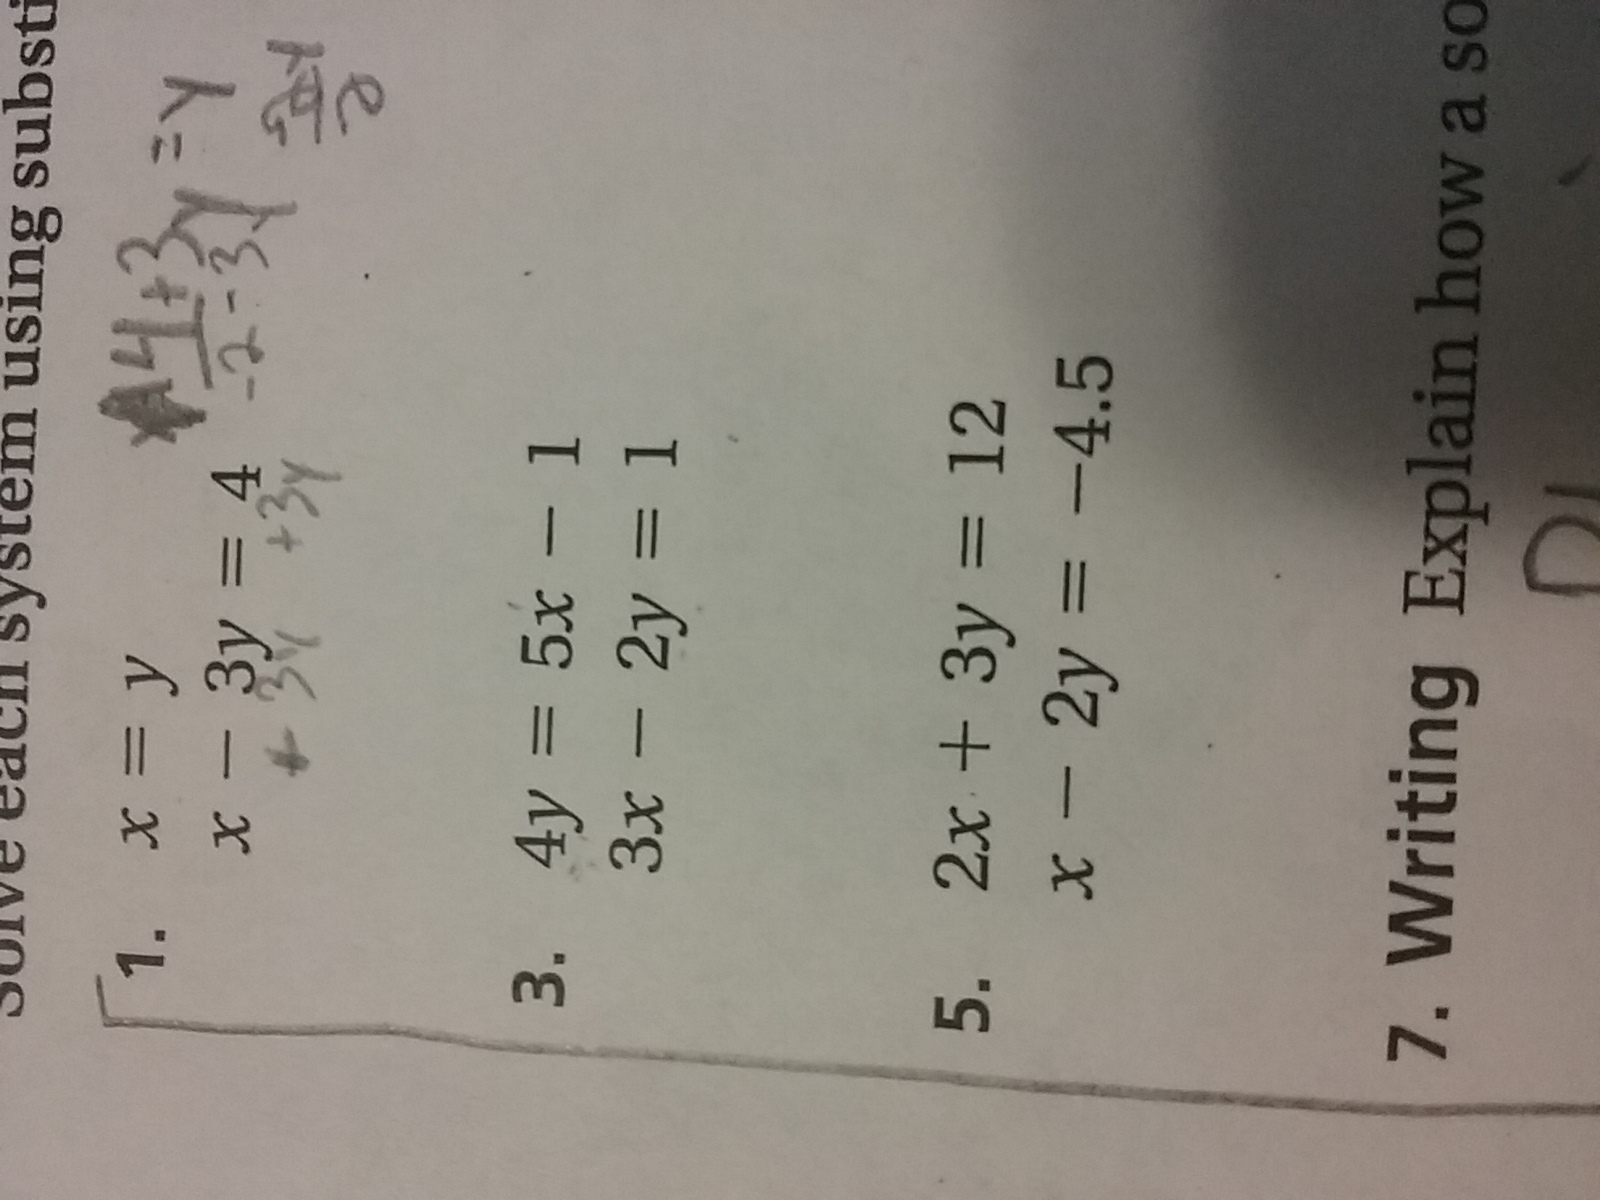 Solve each system using substi
1. x = y
x − 3y = 4
+ 3y +3y
4+3y = y
-2 -3y
3. 4y = 5x − 1
3x − 2y = 1
5. 2x + 3y = 12
x − 2y = −4.5
7. Writing Explain how a so